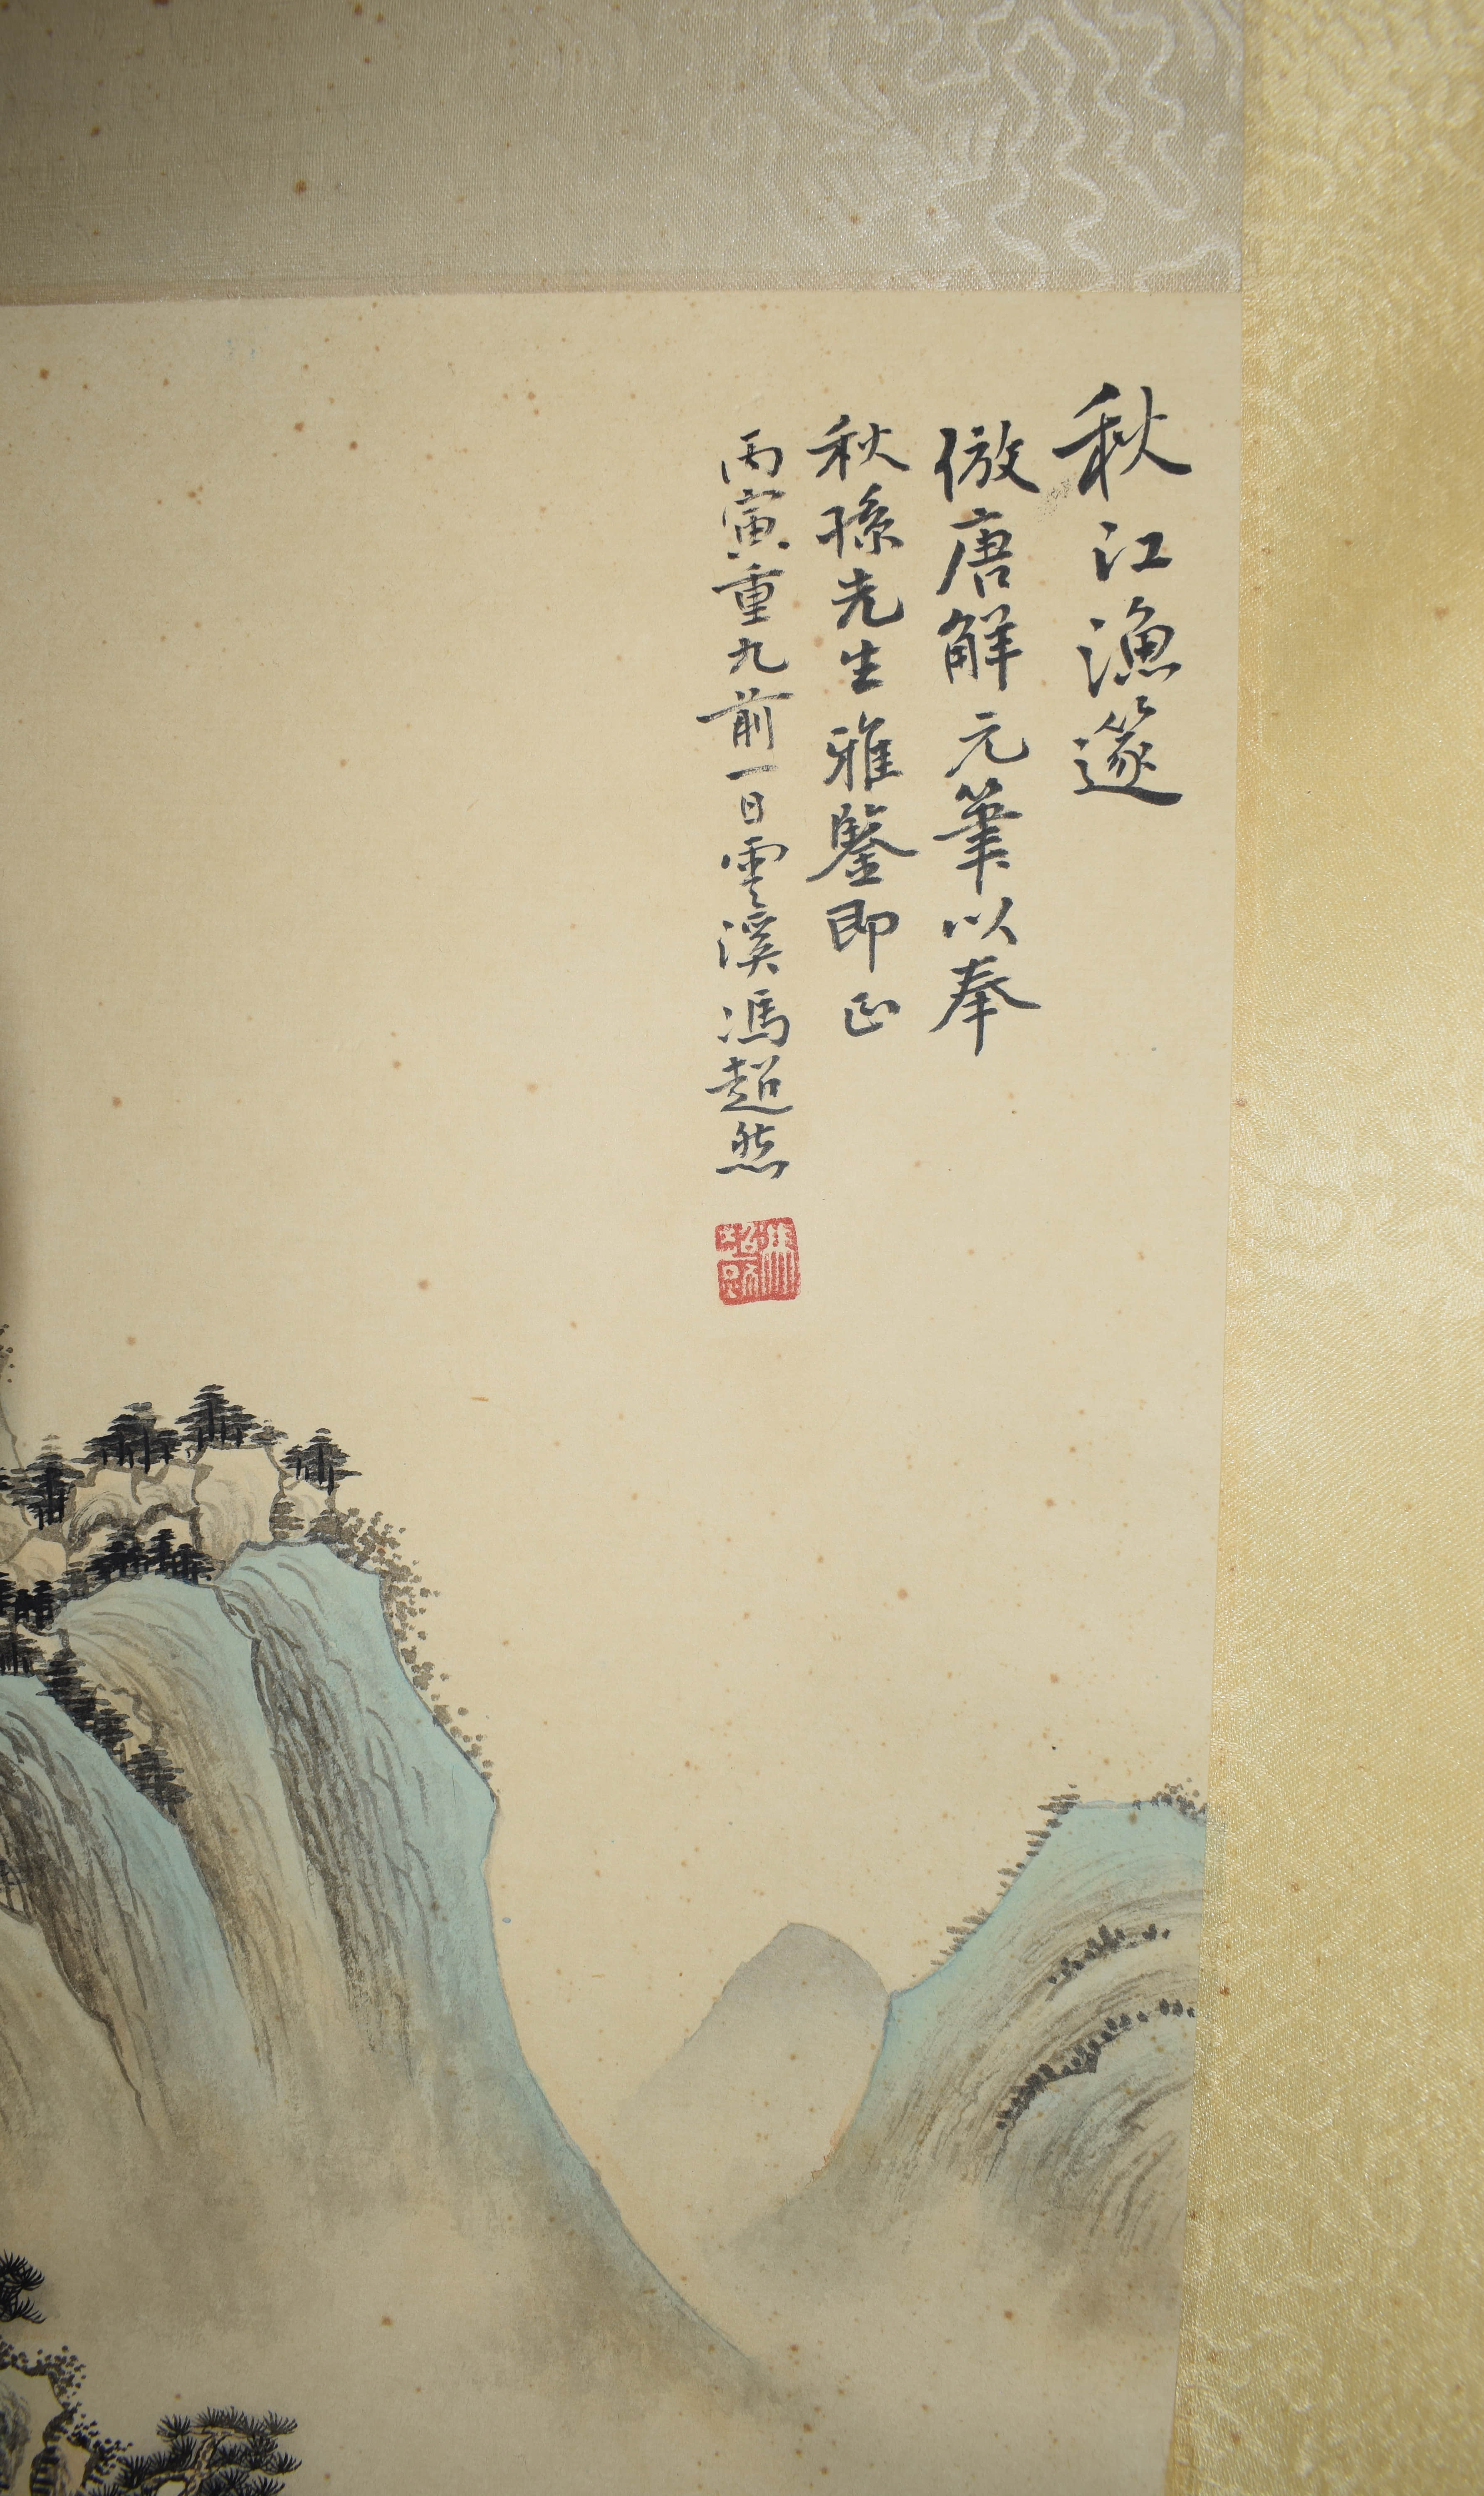 秋江漁篴
倣唐解元筆以奉
秋孫先生雅鑒即正
丙寅重九前一日雲溪馮超然